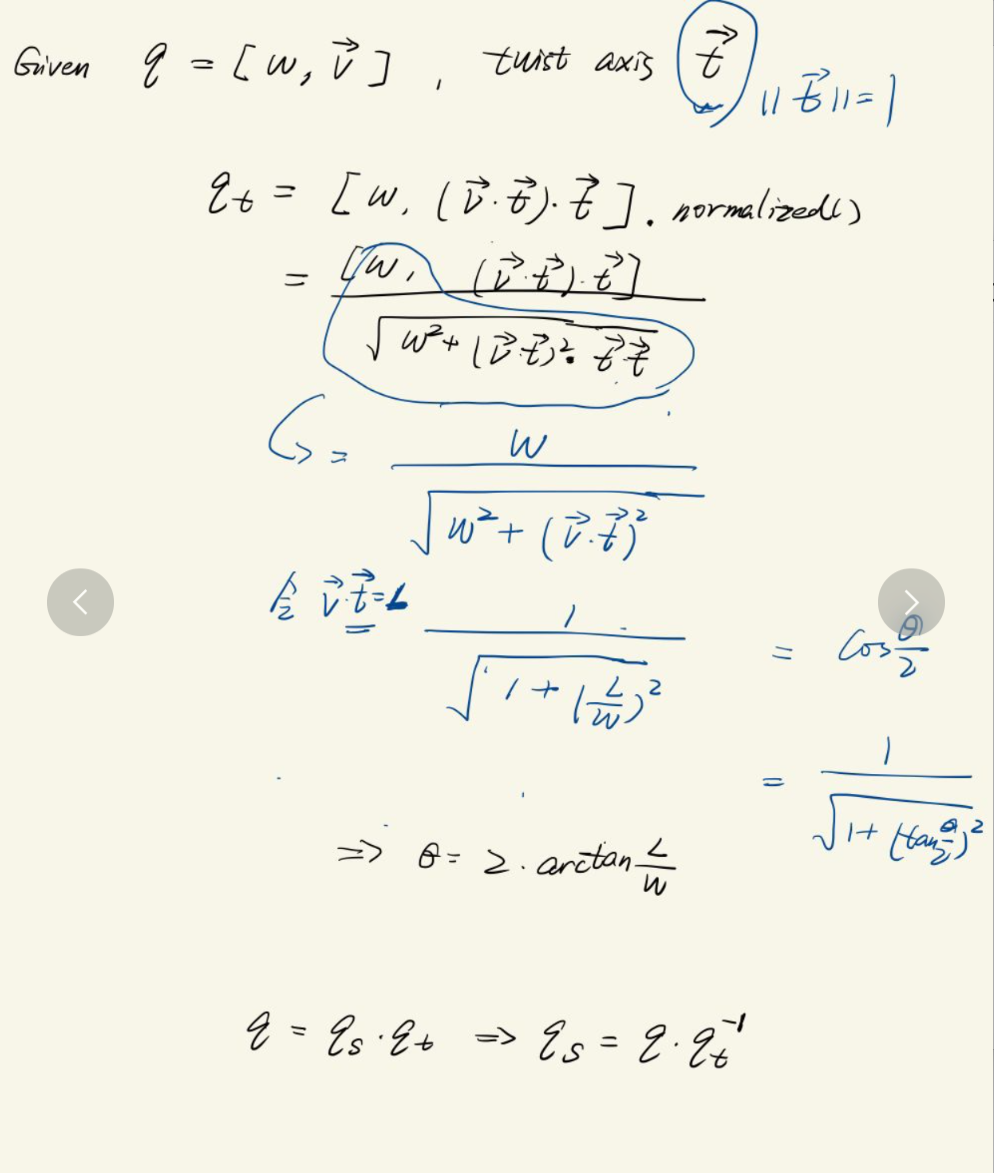 Given q = [w, v⃗], twist axis t⃗ ||t⃗|| = 1
q_t = [w, (v⃗·t⃗)·t⃗].normalized()
= [w, (v⃗·t⃗)·t⃗] / √(w² + (v⃗·t⃗)²·t⃗·t⃗)
= w / √(w² + (v⃗·t⃗)²)
v⃗·t⃗ = L 1 / √(1 + (L/w)²) = cos θ/2
= 1 / √(1 + (tan θ/2)²)
=> θ = 2·arctan L/w
q = q_s·q_t => q_s = q·q_t⁻¹